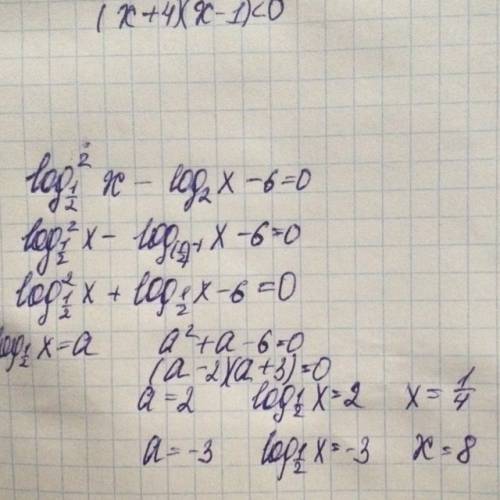 (x+4)(x-1)<0
log²_{1/2} x - log₂ x - 6 = 0
log²_{1/2} x - log_{(1/2)⁻¹} x - 6 = 0
log²_{1/2} x + log_{1/2} x - 6 = 0
log_{1/2} x = a a² + a - 6 = 0
(a-2)(a+3) = 0
a = 2 log_{1/2} x = 2 x = 1/4
a = -3 log_{1/2} x = -3 x = 8